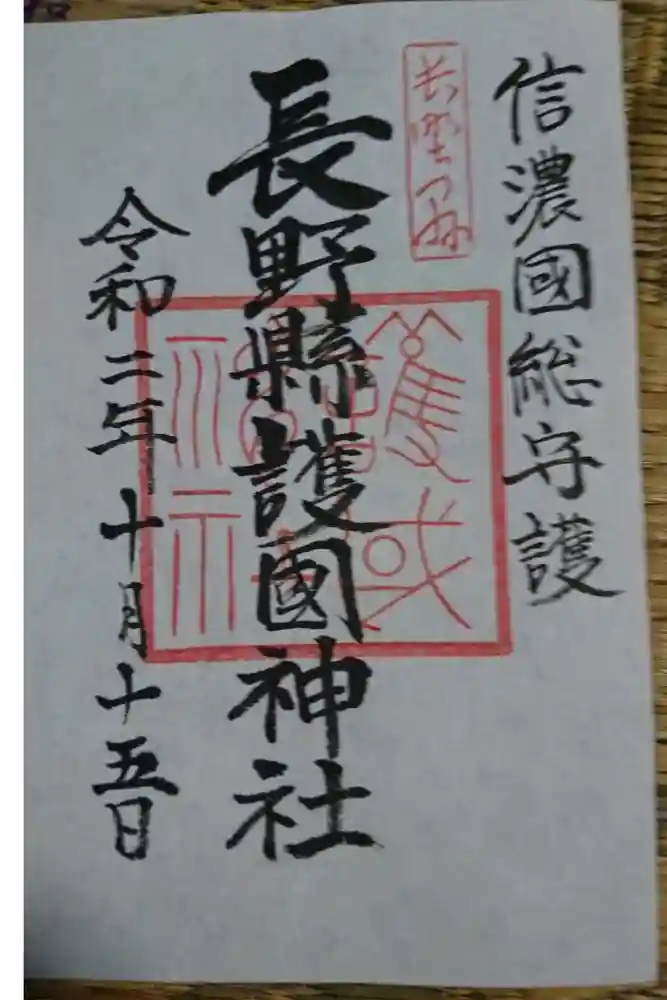 信濃國総守護
長野縣護國神社
令和二年十月十五日